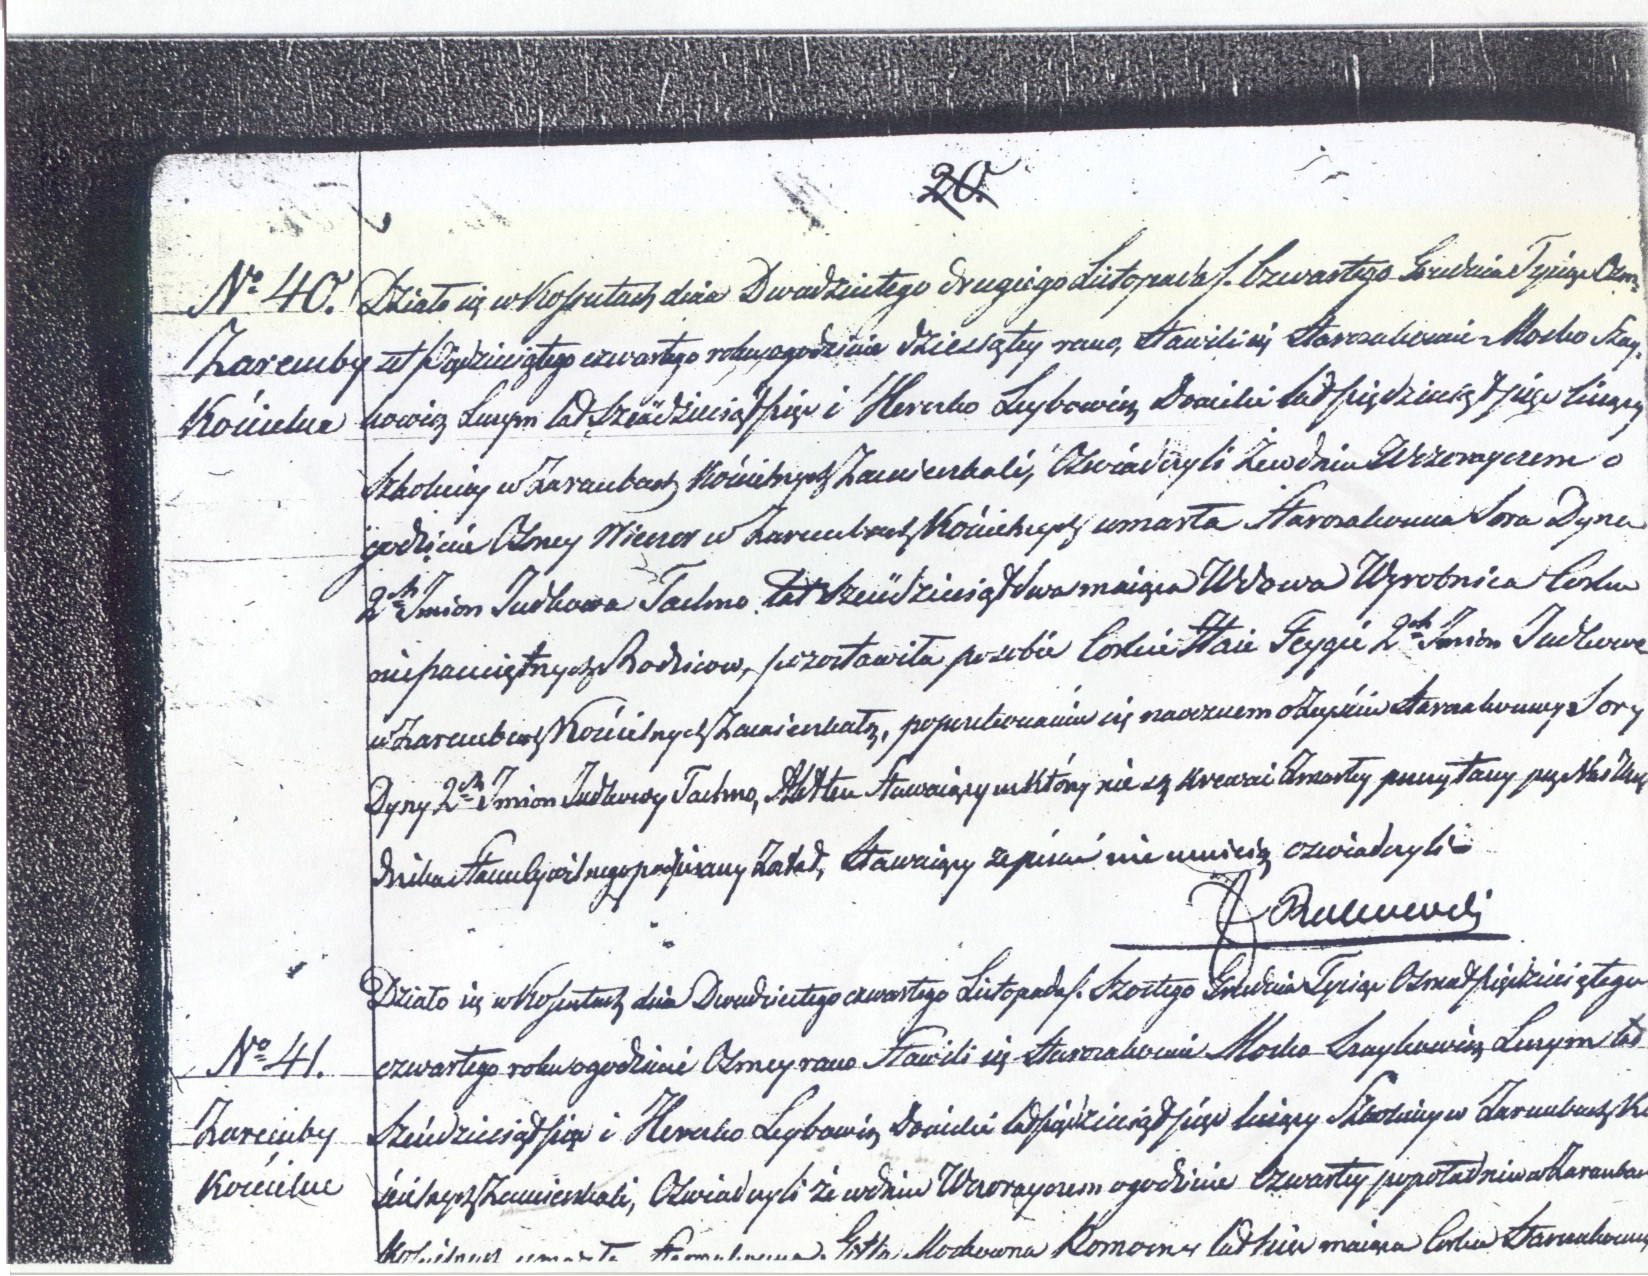 20.
No 40. Działo się w Kossutach dnia Dwudziestego drugiego Listopada/. Czwartego Grudnia Tysiąc Ośm-
Zaremby set Pięćdziesiątego czwartego roku, o godzinie dziesiątej rano, Stawili się Starozakonni Mosko Szay-
Kościelne kowicz Lurym lat Sześćdziesiąt pięć i Herszko Leybowicz lat pięćdziesiąt pięć liczący
Szkolnicy w Zarembach Kościelnych Zamieszkali, Oświadczyli że w dniu Wczorayszem o
godzinie Osmey Wieczor w Zarembach Kościelnych umarła Starozakonna Sora Dyna
2ch Imion Judkowa Tachno lat Sześćdziesiąt dwa maiąca Wdowa Wyrobnica Corka
niepamiętnych Rodziców, pozostawiła po sobie Corkie Haie Feygie 2ch Imion Judkowe
w Zarembach Kościelnych Zamieszkałą, poprzekonaniu się naocznem o Zeyściu Starozakonney Sory
Dyny 2ch Imion Judkowey Tachno, Akt ten Stawaiącym którzy nie są Krewni Zmarłey przeczytany przez Nas Urzę-
dnika Stanu Cywilnego podpisany Został, Stawaiący że pisać nie umieią oświadczyli
Działo się w Kossutach dnia Dwudziestego czwartego Listopada/. Szostego Grudnia Tysiąc Ośmset pięćdziesiątego
No 41. czwartego roku o godzinie Osmey rano Stawili się Starozakonni Mosko Szaykowicz Lurym lat
Zaremby Sześćdziesiąt pięć i Herszko Leybowicz lat pięćdziesiąt pięć liczący Szkolnicy w Zarembach Ko-
Kościelne ścielnych Zamieszkali, Oświadczyli że w dniu Wczorayszem o godzinie Czwartey popołudniu w Zarembach
Kościelnych umarła Starozakonna Moskowna lat maiąca Corka Starozakonnych